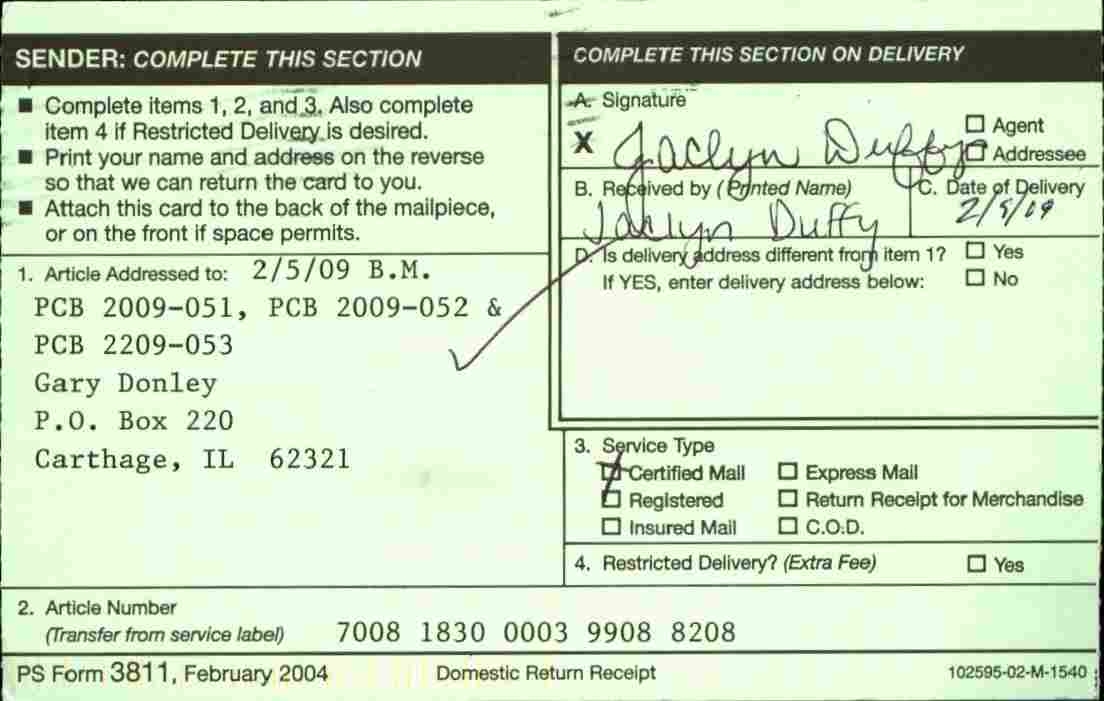 SENDER: COMPLETE THIS SECTION
■ Complete items 1, 2, and 3. Also complete
item 4 if Restricted Delivery is desired.
■ Print your name and address on the reverse
so that we can return the card to you.
■ Attach this card to the back of the mailpiece,
or on the front if space permits.
1. Article Addressed to: 2/5/09 B.M.
PCB 2009-051, PCB 2009-052 &
PCB 2209-053
Gary Donley
P.O. Box 220
Carthage, IL 62321
COMPLETE THIS SECTION ON DELIVERY
A. Signature
X Jaclyn Duffy
☐ Agent
☐ Addressee
B. Received by (Printed Name)
Jaclyn Duffy
C. Date of Delivery
2/9/09
D. Is delivery address different from item 1? ☐ Yes
If YES, enter delivery address below: ☐ No
3. Service Type
☑ Certified Mail ☐ Express Mail
☐ Registered ☐ Return Receipt for Merchandise
☐ Insured Mail ☐ C.O.D.
4. Restricted Delivery? (Extra Fee) ☐ Yes
2. Article Number
(Transfer from service label) 7008 1830 0003 9908 8208
PS Form 3811, February 2004 Domestic Return Receipt 102595-02-M-1540